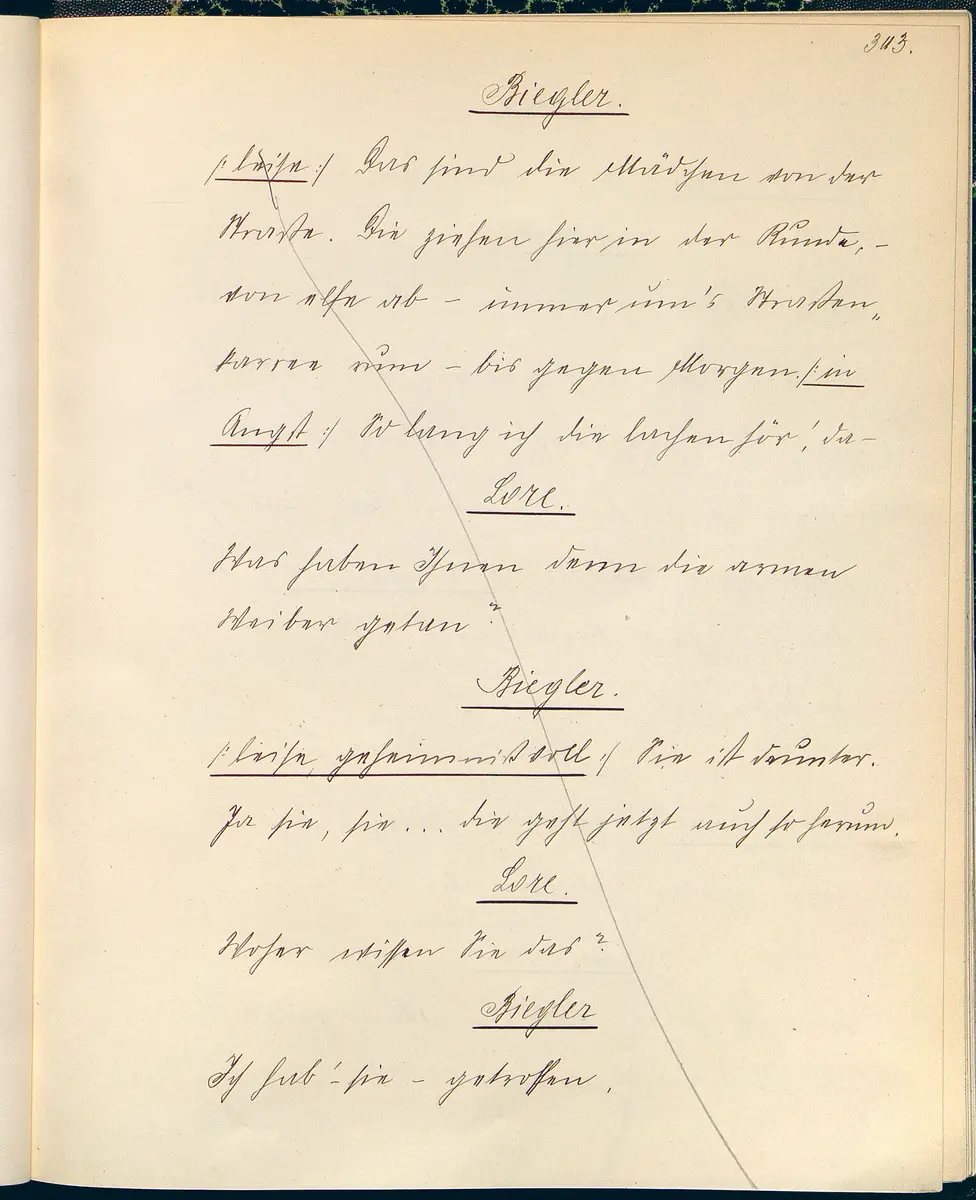 343.
Biegler.
/: leise :/ Das sind die Mädchen von der
Straße. Die ziehen hier in der Runde, –
von elfe ab – immer um's Straßen„
karree rum – bis gegen Morgen. /: in
Angst :/ So lang ich die lachen hör', da –
Lore.
Was haben Ihnen denn die armen
Weiber getan?
Biegler.
/: leise, geheimnißvoll :/ Sie ist drunter.
Ja sie, sie... die geht jetzt auch so herum.
Lore.
Woher wissen Sie das?
Biegler
Ich hab' – sie – getroffen.